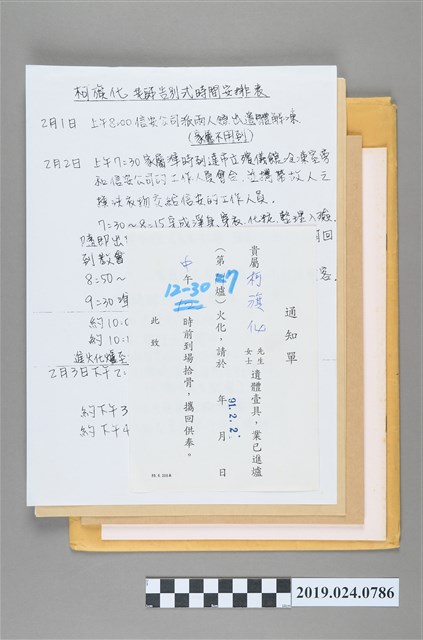 柯旗化老師告別式時間安排表
2月1日 上午8:00信安公司派兩人領出遺體解凍
(家屬不用到)
2月2日 上午7:30家屬準時到達市立殯儀館冷凍室旁
和信安公司的工作人員會合,並携帶故人之
換洗衣物交給信安的工作人員.
7:30~8:15完成淨身,穿衣,化粧,整理入殮
隨即出
回
到教會
8:50~
客.
9:30準
約10:0
約10:1
進火化爐至
2月3日下午2:
約下午3
約下午4
通知單
貴屬 柯旗化 先生 女士 遺體壹具,業已進爐
(第 7 爐)火化,請於 91.2.2. 年 月 日
中午 12-30 時前到場拾骨,攜回供奉。
此致
2019.024.0786